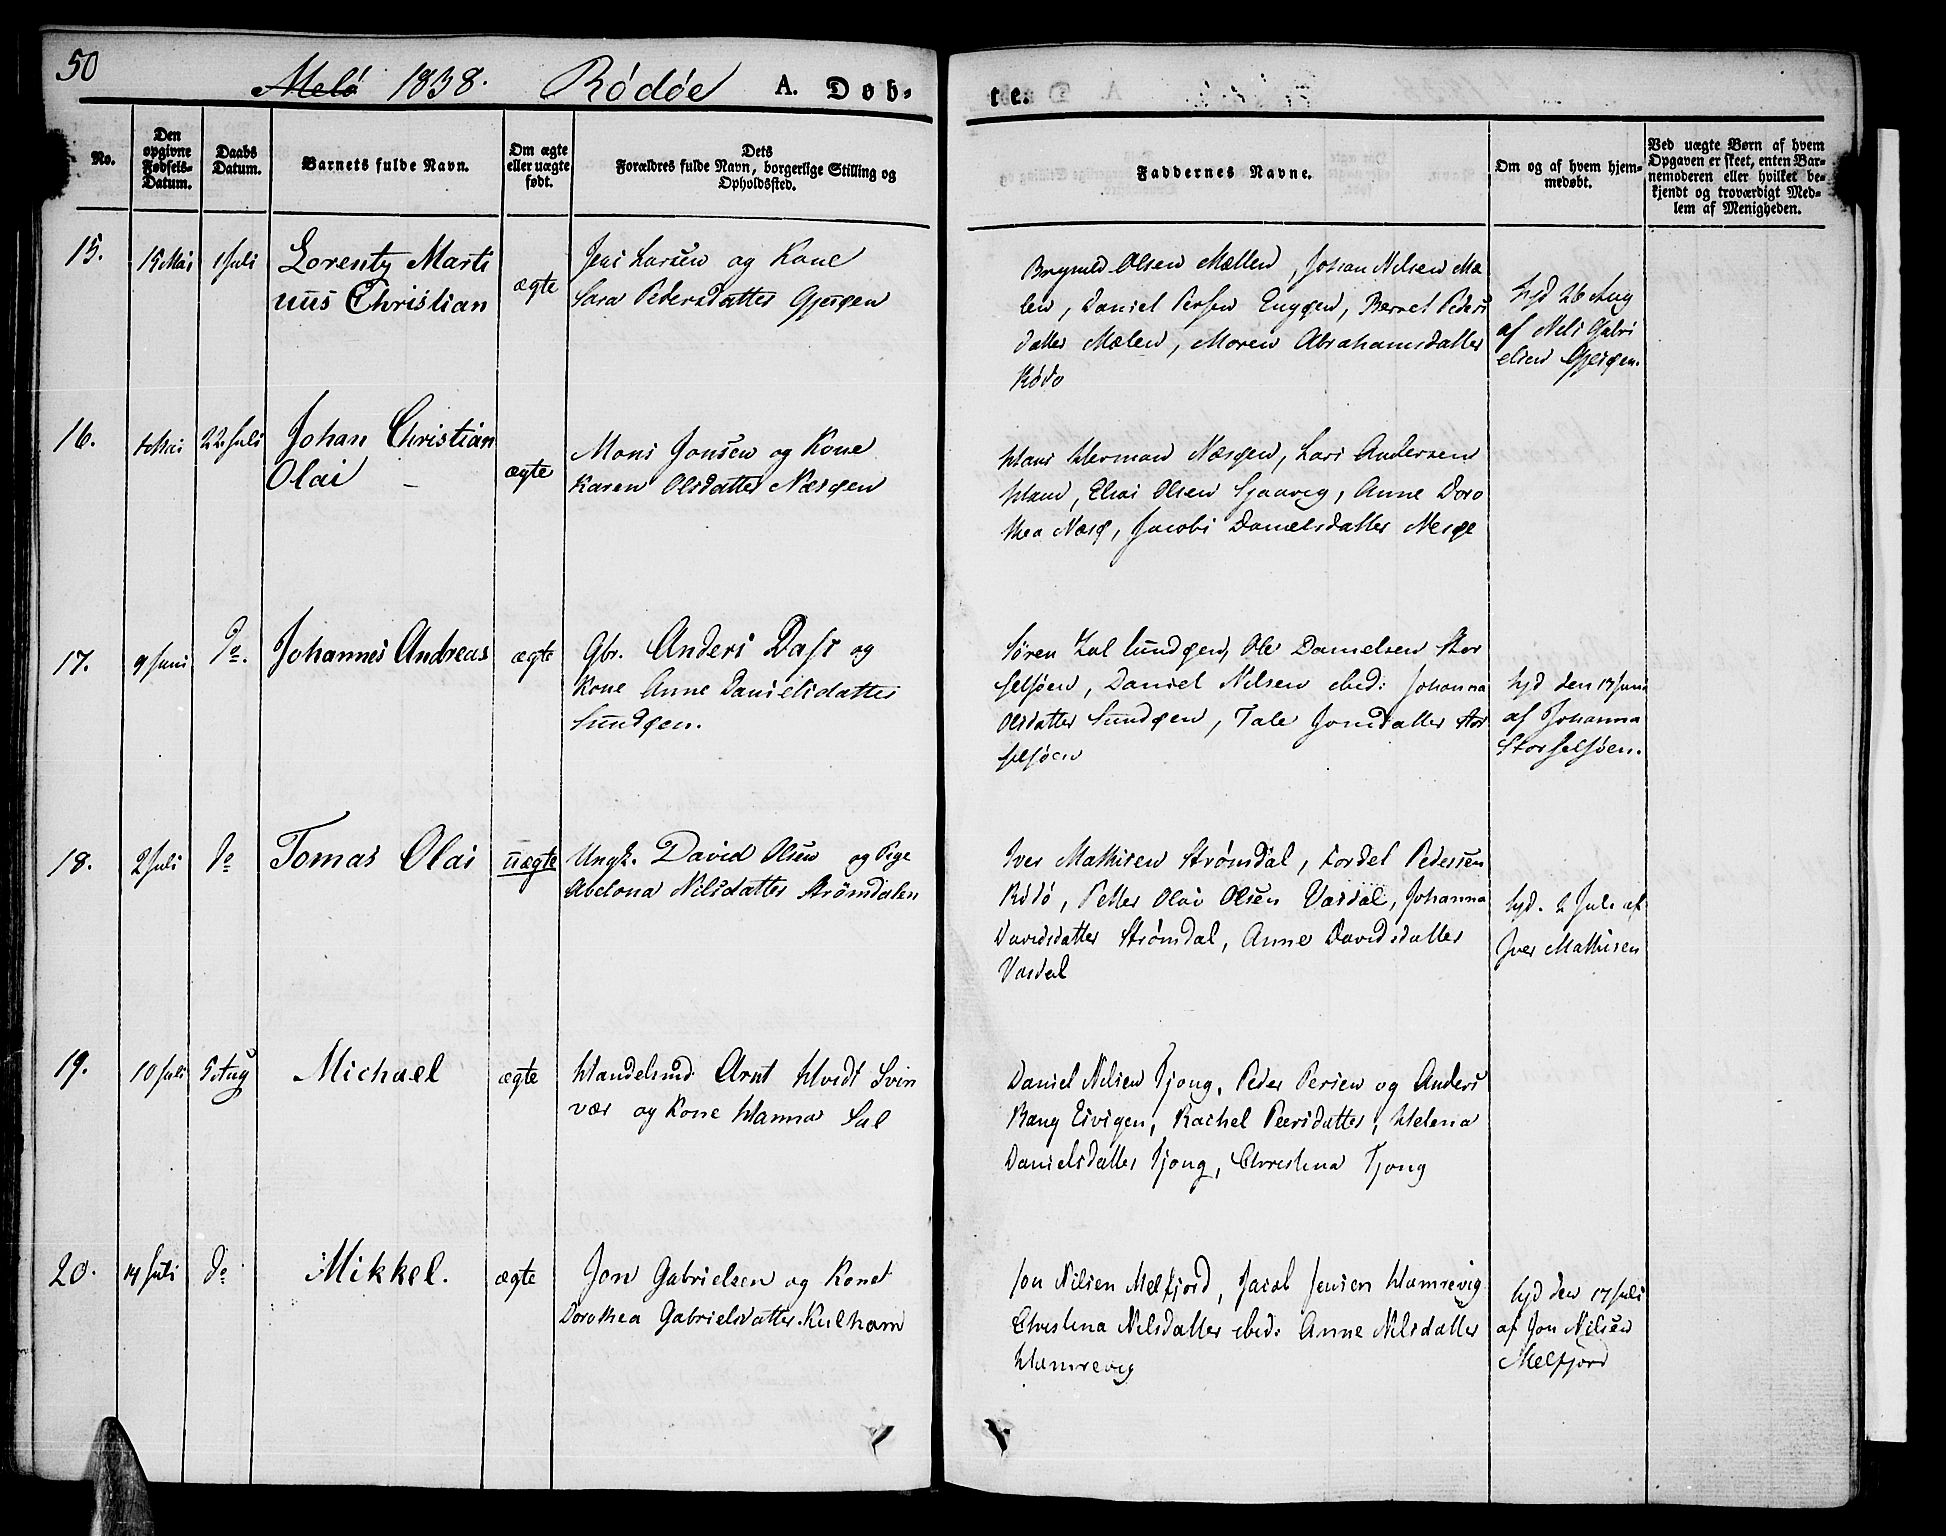 50
Melø 1838. Rødøe A. Døb- te.
No.
Den opgivne Fødsels-Datum.
Daabs Datum.
Barnets fulde Navn.
Om ægte eller uægte født.
Dets Forældres fulde Navn, borgerlige Stilling og Opholdssted.
Faddernes Navne.
Om og af hvem hjemmedøbt.
Ved uægte Børn af hvem Opgaven er skeet, enten Barnemoderen eller hvilket bekjendt og troværdigt Medlem af Menigheden.
15. 15 Mai 1 Juli
Lorentz Marti
nus Christian
ægte
Jens Larsen og Kone
Sara Pedersdatter Gjerøen
Brynild Olsen Mællen, Johan Nilsen Mæ
len, Daniel Persen Engøen, Berret Peders
datter Mælen, Maren Abrahamsdatter
Rødø
hjd 26 Aug
af Nels Gabri
elsen Gjerøen.
16. 4 Mai 22 Juli
Johan Christian
Olai –
ægte
Mons Jonsen og Kone
Karen Olsdatter Næsøen
Hans Herman Næsøen, Lars Andersen
Hland, Elias Olsen Sjaavig, Anne Doro
thea Næsø, Jacobi Danielsdatter Nesøe
17. 9 Juni do.
Johannes Andreas
ægte
Gbr. Anders Dass og
Kone Anne Danielsdatter
Sundøen.
Søren Zal Sundøen, Ole Danielsen Stor
selsøen, Daniel Nilsen ibid: Johanna
Olsdatter Sundøen, Tale Jonsdatter Stor
selsøen
hjd den 17 Juni
af Johanna
Storselsøen.
18. 2 Juli do
Tomas Olai
uægte
Ungk. David Olsen og Pige
Abelona Nilsdatter Strømdalen
Iver Mathisen Strømdal, Tordel Pedersen
Rødø, Petter Olai Olsen Vasdal, Johanna
Davidsdatter Strømdal, Anne Davidsdatter
Vasdal
hjd. 2 Juli af
Iver Mathisen
19. 10 Juli 5 Aug
Michael
ægte
Handelsmd Arnt Hvidt Svin
vær og Kone Hanna Sal
Daniel Nilsen Tjong, Peder Persen og Anders
Bang Eivigen, Rachel Peersdatter, Helena
Danielsdatter Tjong, Christina Tjong
20. 14 Juli do
Mikkel.
ægte
Jon Gabrielsen og Konet
Dorothea Gabrielsdatter Kilhavn
Jon Nilsen Melfjord, Jacob Jensen Hamrevig
Christina Nilsdatter ibid: Anne Nilsdatter
Hamrevig
hjd den 17 Juli
af Jon Nilsen
Melfjord